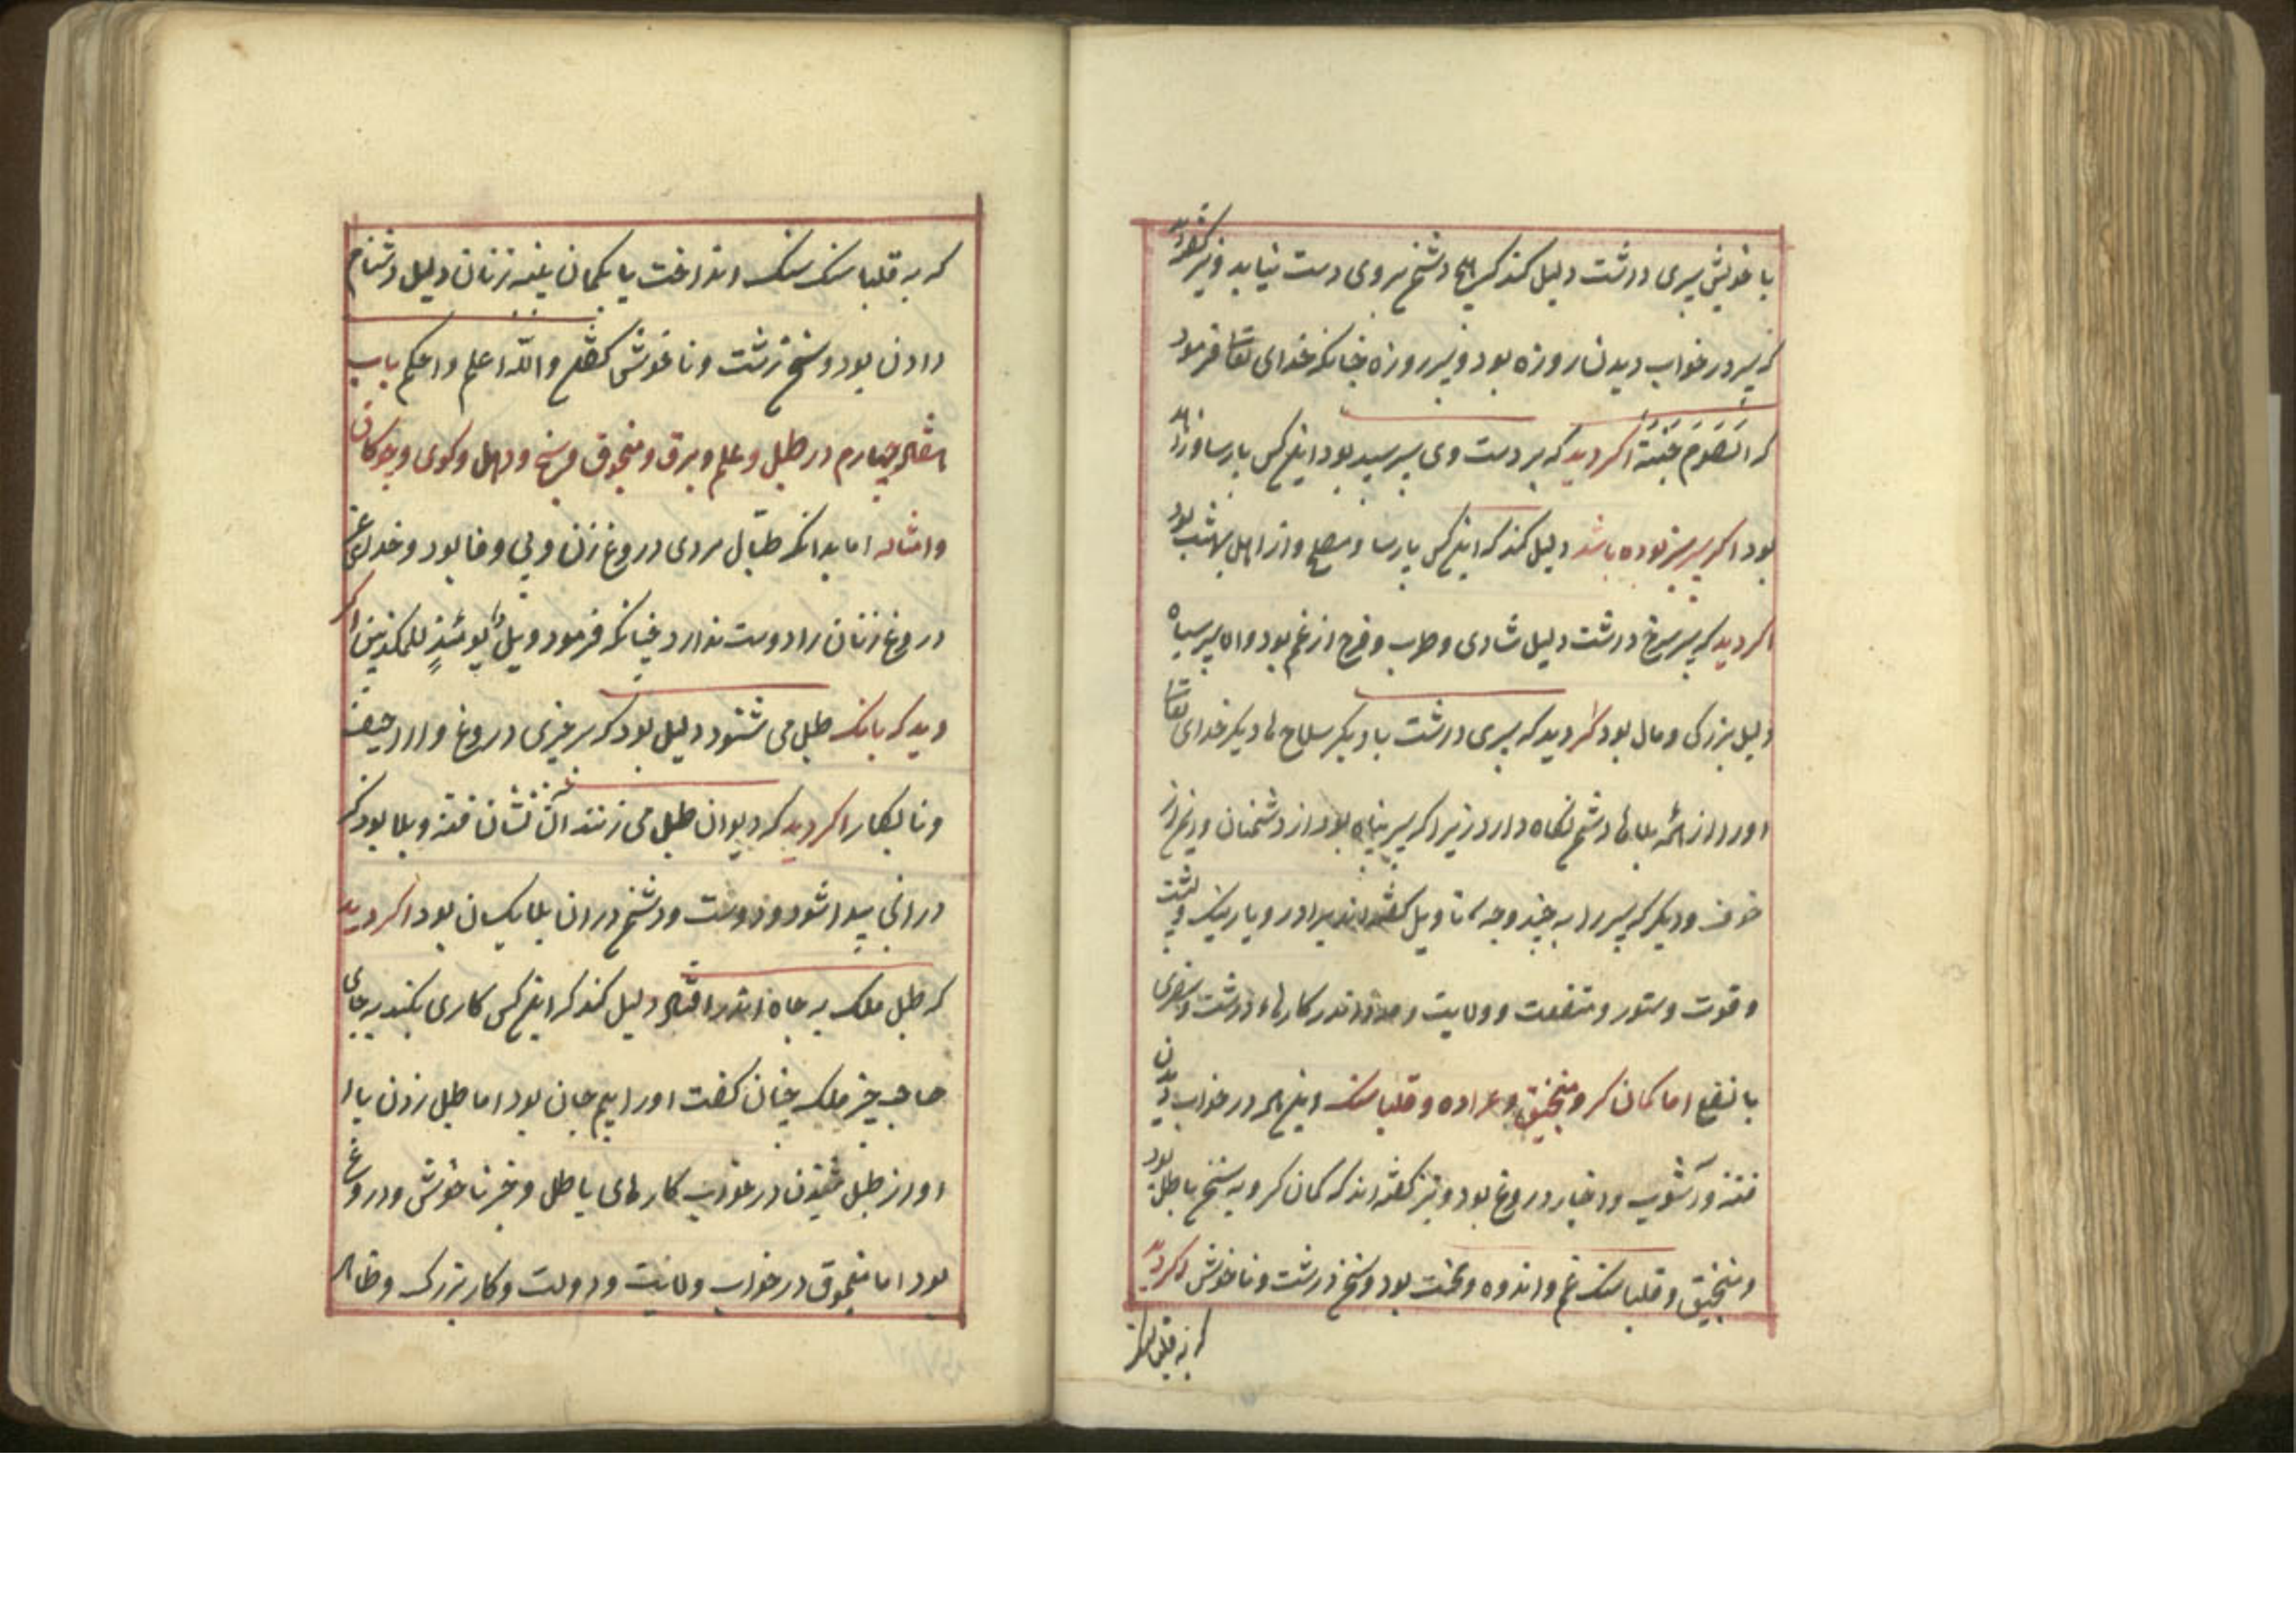 با خویش سپری داشت دلیل کند که هیچ دشمن بروی دست نیابد و نیز گفته‌اند
که سپر در خواب دیدن روزه بود و سپر روزه چنانکه خدای تعا فرمود
که الصَوم جُنّة اکر دید که بر دست وی سپر سپید بود این کس پارسا و زاهد
بود اکر سپر سبز بوده باشد دلیل کند که این کس پارسا و مصلح و از اهل بهشت بود
اکر دید که سپر سرخ داشت دلیل شادی و طرب و فرح از غم بود و ان سپر سیاه
دلیل بزرکی و مال بود اکر دید که سپری داشت با دیکر سلاح ها دیکر خدای تعا
او را از همه بلاهای دشمن نکاه دارد زیرا که سپر پناه بود از دشمنان و رنج از
خوف و دیکر که سپر را به چند وجه تاویل کفته‌اند برادر و یار نیک و پشت
و قوت و ستور و منفعت و ولایت و اندر کارهاء درشت و سفری
با نفع اما کمان کروهه و منجنیق و عراده و قلباسنک این همه در خواب دیدن
فتنه و آشوب و اخبار دروغ بود و نیز کفته اند که کمان کروهه سخن باطل بود
و منجنیق و قلباسنک غم و اندوه و محنت بود و سخن زشت و ناخوش اکر دید
که به قلباسنک
که به قلباسنک سنک انداخت یا بکمان دلیل دشنام
دادن بود و سخن زشت و ناخوش کفتن والله اعلم و احکم باب
هشتاد و چهارم در طبل و علم و برق و منجوق و سنج و دهل و کوی و چوکان
و امثاله اما بدانکه طبّال مردی دروغ زن و بی وفا بود و خدای
دروغ زنان را دوست ندارد چنانکه فرمود ویل یومئذٍ للمکذبین اکر
دید که بانک طبل می شنود دلیل بود که بر چیزی دروغ و اراجیف
و نابکار اکر دید که دیوان طبل می زنند آن نشان فتنه و بلا بود که
در آنجا پیدا شود و دوست و دشمن در ان بلا یکسان بود اکر دید
که طبل ملک به چاه اندر افتاد دلیل کند که این کس کاری بکند به جای
صاحب خبر ملک چنان کفت او را بیم جان بود اما طبل زدن یا
اواز طبل شنیدن در خواب کارهای باطل و خبر ناخوش و دروغ
بود اما منجوق در خواب ولایت و دولت و کار بزرک و ظاهر